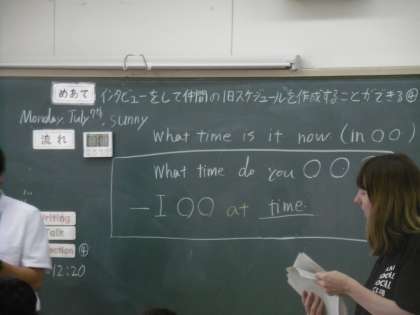 めあて インタビューをして仲間の1日スケジュールを作成することができる④
Monday, July 7th, sunny
流れ
What time is it now (in ○○)
What time do you ○○○
— I ○○ at time.
Writing
Talk
④
12:20